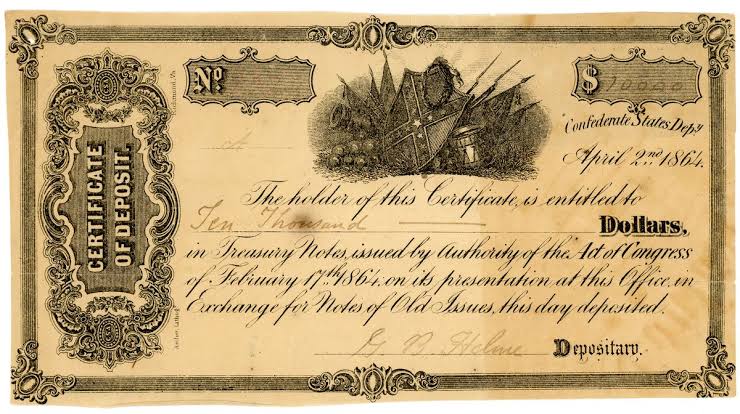 CERTIFICATE
OF DEPOSIT.
Richmond, Va.
No
$ 10000
Confederate States, Depy
April 2nd 1864.
The holder of this Certificate, is entitled to
Ten Thousand Dollars,
in Treasury Notes, issued by Authority of the Act of Congress
of February 17th 1864, on its presentation at this Office, in
Exchange for Notes of Old Issues, this day deposited.
G. B. Helme Depositary.